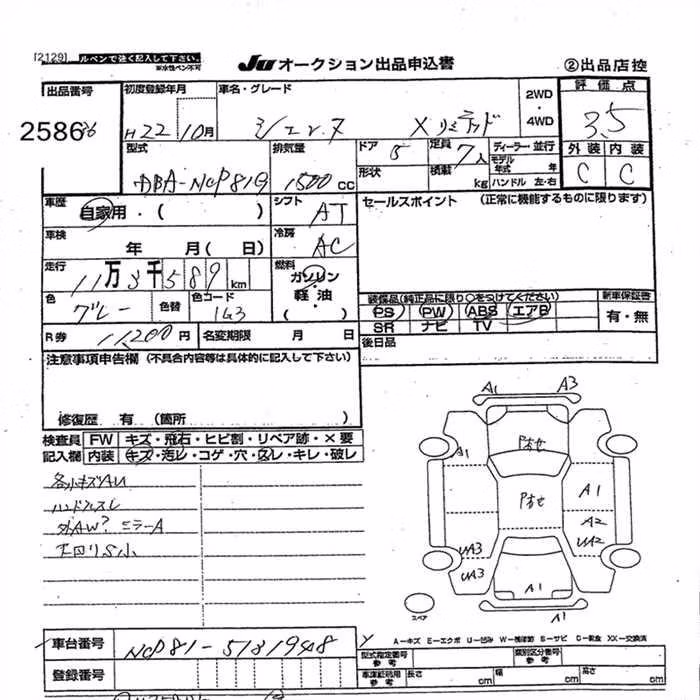 [2129] ルペンで強く記入して下さい。
※水性ペン不可
JU オークション出品申込書 ②出品店控
出品番号 初度登録年月 車名・グレード 2WD・4WD 評価点
2586 H22 10月 シエンタ Xリミテッド 3.5
型式 排気量 ドア 5 定員 7人 ディーラー・並行 外装 内装
DBA-NCP81G 1500cc 形状 積載 kg モデル年式 年 ハンドル 左・右 C C
車歴 自家用・( ) シフト AT セールスポイント (正常に機能するものに限ります)
車検 年 月( 日) 冷房 AC
走行 11万3千589km 燃料 ガソリン・軽油・( )
色 グレー 色替 色コード 1G3 装備品(純正品に限り○をつけてください) 新車保証書
PS PW ABS エアB 有・無
SR ナビ TV
R券 11,200円 名変期限 月 日 後日品
注意事項申告欄 (不具合内容等は具体的に記入して下さい)
修復歴 有 (箇所 )
検査員 FW キズ・飛石・ヒビ割・リペア跡・×要
記入欄 内装 キズ・汚レ・コゲ・穴・スレ・キレ・破レ
各小キズAU
ハンドルスレ
外AW? ミラーA
下回りS小
A1 A3
A1
A1
A2
UA2
UA3
UA3
A1
A1
スペア
A-キズ E-エクボ U-凹み W-補修跡 S-サビ C-腐食 XX-交換済
車台番号 NCP81-5131948
型式指定番号 参考 類別区分番号 参考
登録番号 車庫証明用 参考 長さ cm 幅 cm 高さ cm